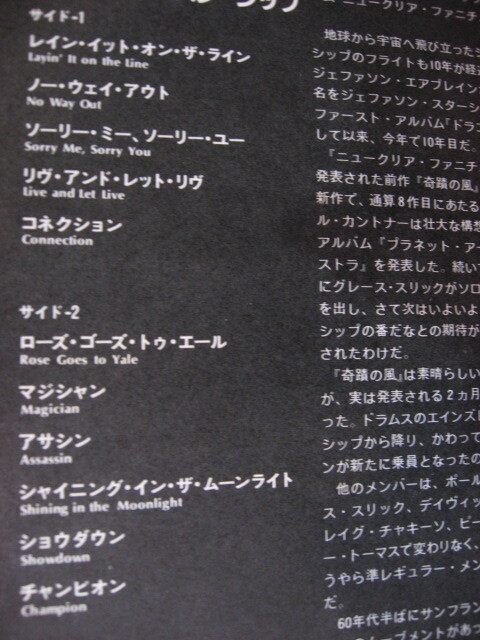 サイド-1
レイン・イット・オン・ザ・ライン
Layin' It on the Line
ノー・ウェイ・アウト
No Way Out
ソーリー・ミー、ソーリー・ユー
Sorry Me, Sorry You
リヴ・アンド・レット・リヴ
Live and Let Live
コネクション
Connection
サイド-2
ローズ・ゴーズ・トゥ・エール
Rose Goes to Yale
マジシャン
Magician
アサシン
Assassin
シャイニング・イン・ザ・ムーンライト
Shining in the Moonlight
ショウダウン
Showdown
チャンピオン
Champion
ニュークリア・ファニチ
地球から宇宙へ飛び立った
シップのフライトも10年が経
ジェファソン・エアプレイン
名をジェファソン・スターシ
ファースト・アルバム『ドラゴ
して以来、今年で10年目だ。
『ニュークリア・ファニチ
発表された前作『奇蹟の風』
新作で、通算8作目にあたる
ル・カントナーは壮大な構想
アルバム『プラネット・アー
ストラ』を発表した。続い
にグレース・スリックがソロ
を出し、さて次はいよいよ
シップの番だなとの期待が
されたわけだ。
『奇蹟の風』は素晴らしい
が、実は発表される2ヵ月
った。ドラムスのエインズ
シップから降り、かわって
ンが新たに乗員となったの
他のメンバーは、ポール
ス・スリック、デイヴィッ
レイグ・チャキーソ、ピー
ー・トーマスで変わりなく、
うやら準レギュラー・メン
だ。
60年代半ばにサンフラン